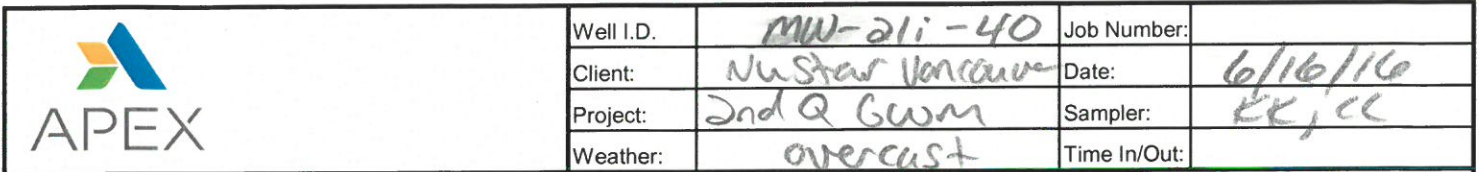 APEX
Well I.D. MW-21i-40 Job Number:
Client: NuStar Vancouver Date: 6/16/16
Project: 2nd Q GWM Sampler: KK, CC
Weather: overcast Time In/Out: